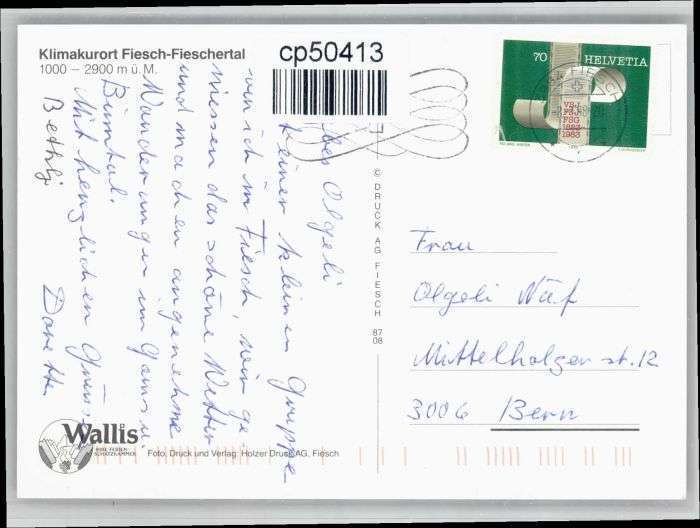 Klimakurort Fiesch-Fieschertal
1000 – 2900 m ü. M.
cp50413
70 HELVETIA
VSJ
FSJ
FSG
1883
1983
FIESCH
Olgeli
einer kleinen Gruppe
ich in Fiesch, wir ge
niessen das schöne Wetter
und machen angenehme
Wanderungen im Goms u.
Binntal.
Mit herzlichen Grüssen
Bethlj
© DRUCK AG FIESCH 87 08
Frau
Olgeli Näf
Mittelholzerstr. 12
3006 Bern
Wallis
Foto, Druck und Verlag: Holzer Druck AG, Fiesch